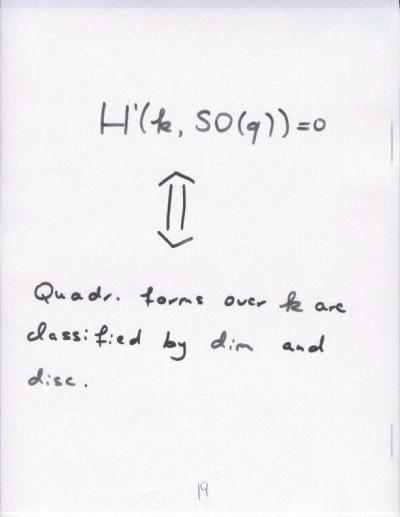 H¹(k, SO(q))=0
⇕
Quadr. forms over k are
classified by dim and
disc.
19